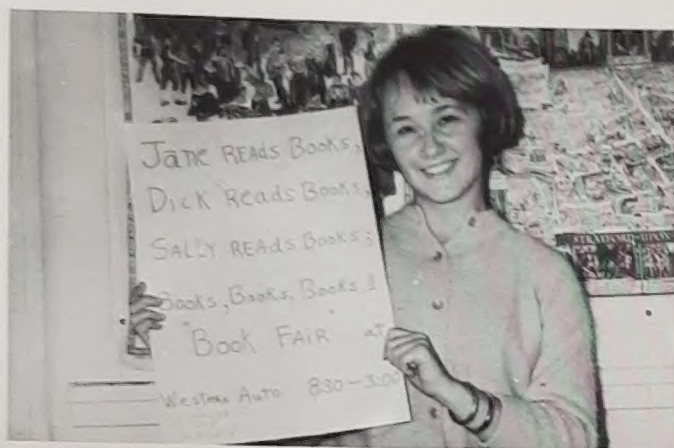 Jane READs Books,
Dick Reads Books,
SALLY READs Books;
Books, Books, Books!
"Book FAIR" at
Western Auto 830-3:00
STRATFORD-UPON-